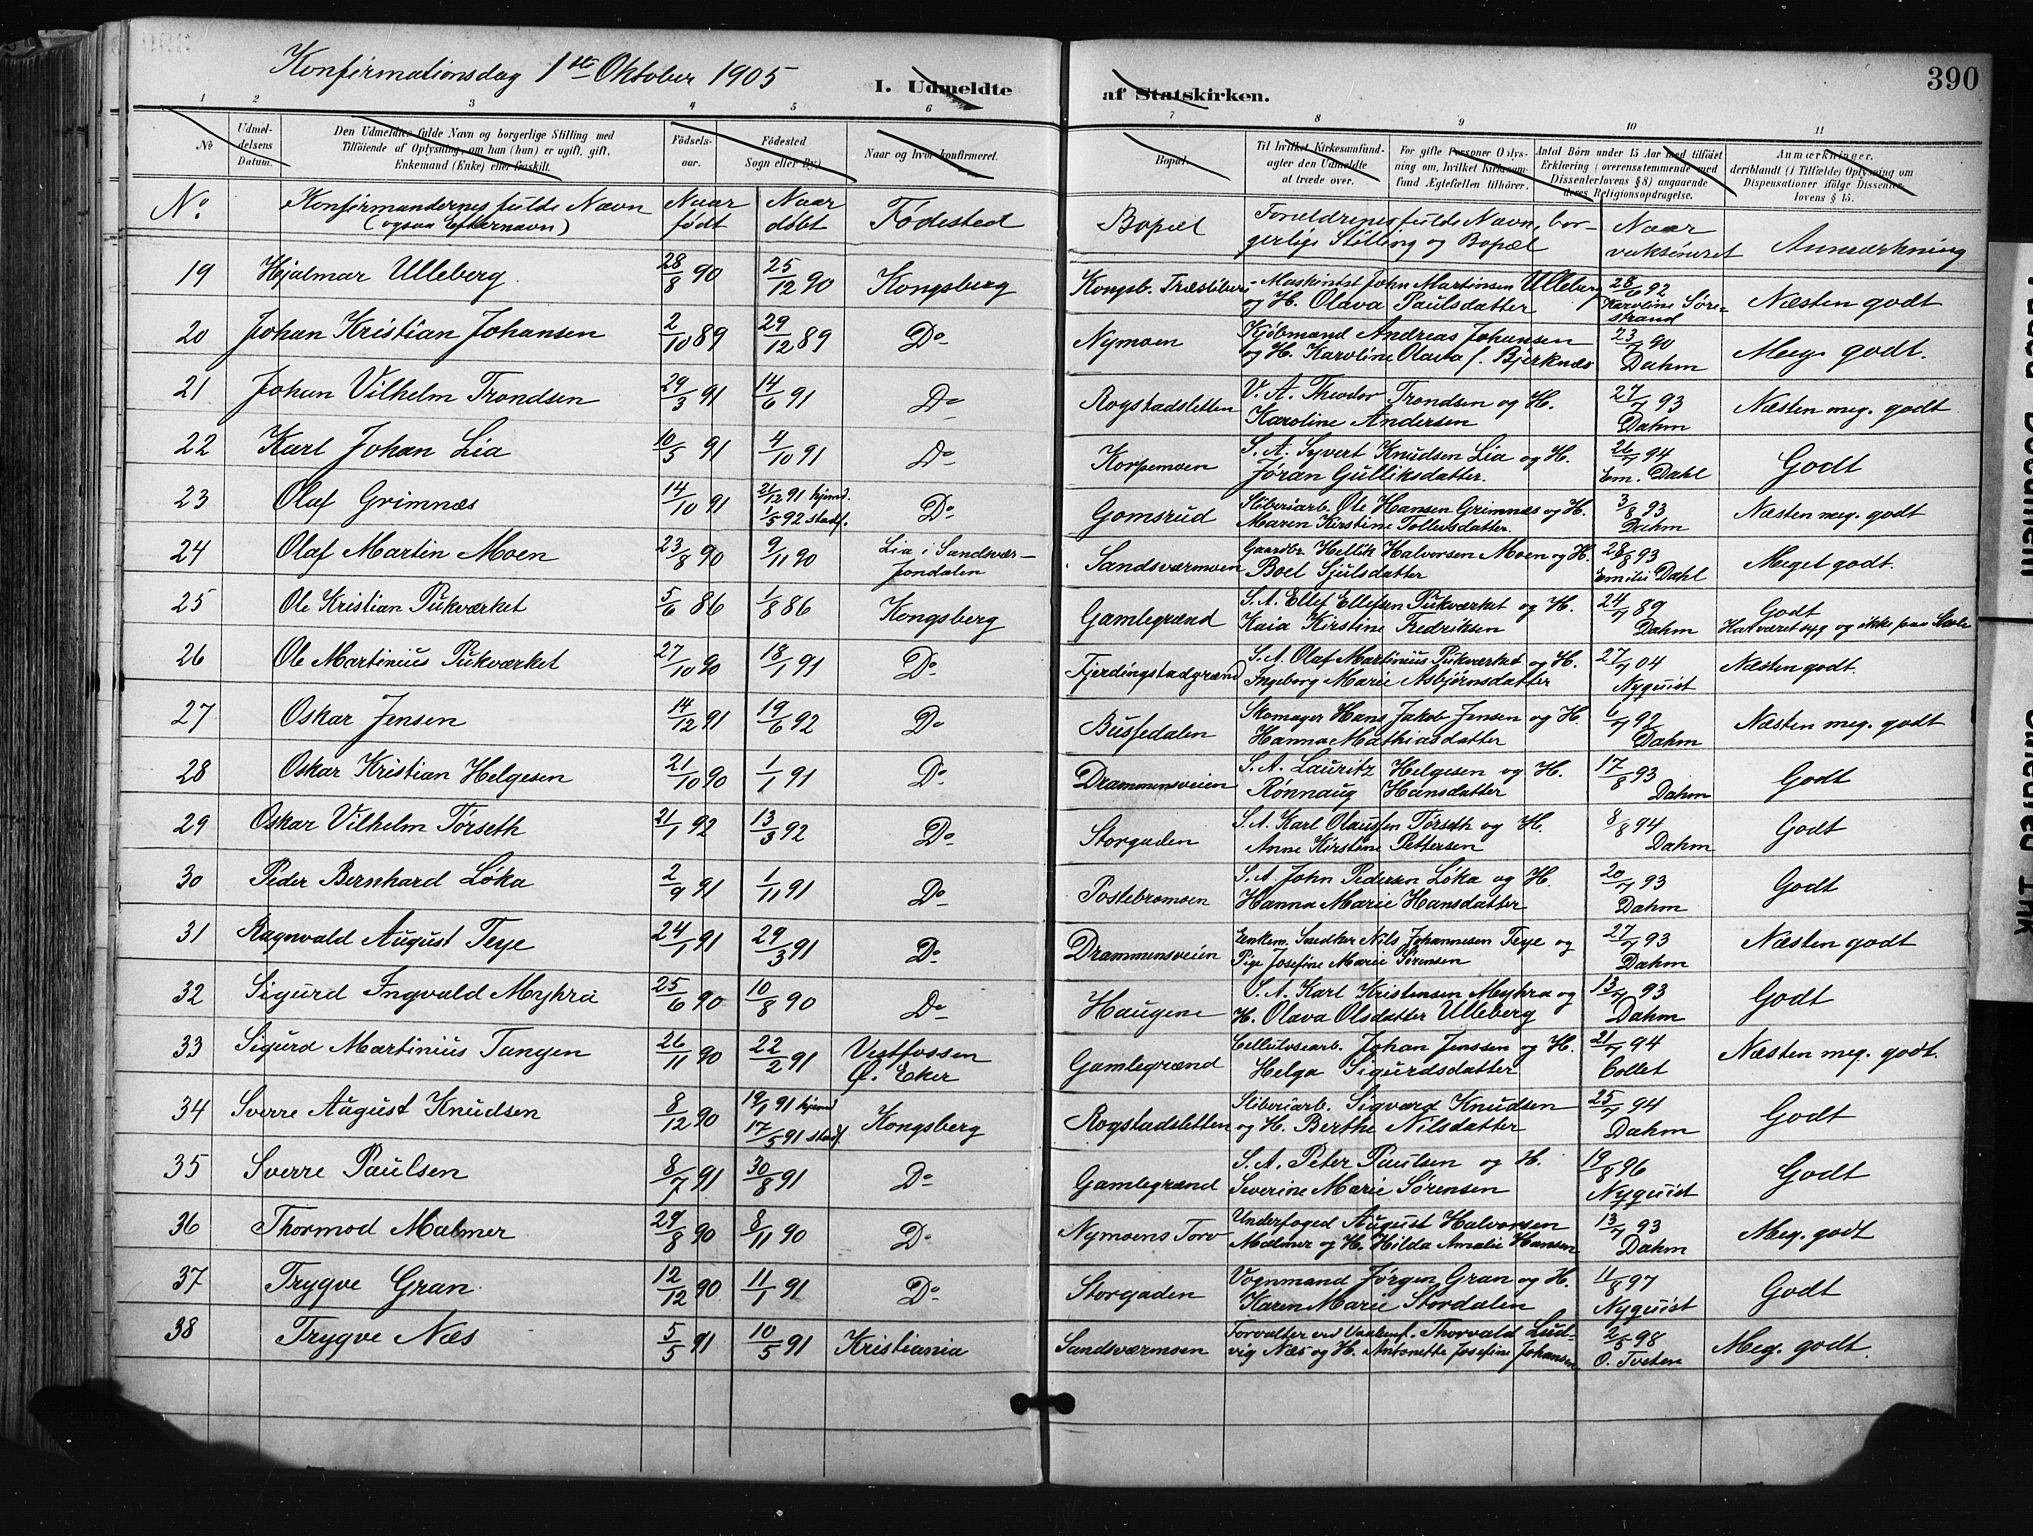 Konfirmationsdag 1ste Oktober 1905
I. Udmeldte af Statskirken.
390
1 2 3 4 5 6 7 8 9 10 11
No
Udmeldelsens Datum.
Den Udmeldtes fulde Navn og borgerlige Stilling med Tilføiende af Oplysning, om han (hun) er ugift, gift, Enkemand (Enke) eller fraskilt.
Fødselsaar.
Fødested Sogn eller By.)
Naar og hvor konfirmeret.
Bopæl.
Til hvilket Kirkesamfund agter den Udmeldte at træde over.
For gifte Personer Oplysning om, hvilket Kirkesamfund Ægtefællen tilhører.
Antal Børn under 15 Aar med tilføiet Erklæring (overensstemmende med Dissenterlovens § 8) angaaende deres Religionsopdragelse.
Anmærkninger, deriblandt (i Tilfælde) Oplysning om Dispensationer ifølge Dissenterlovens § 15.
No. Konfirmandernes fulde Navn (ogsaa Efternavn) Naar født Naar døbt Fødested Bopæl Forældrenes fulde Navn, borgerlige Stilling og Bopæl Naar vaksineret Anmærkning
19 Hjalmar Ulleberg 28/8 90 25/12 90 Kongsberg Kongsb. Træsliberi Maskinist John Martinsen Ulleberg og H. Olava Paulsdatter 28/6 92 Karoline Sørestrand Næsten godt
20 Johan Kristian Johansen 2/10 89 29/12 89 Do Nymoen Kjøbmand Andreas Johansen og H. Karoline Olava f. Bjerknæs 23/7 90 Dahm Meg. godt.
21 Johan Vilhelm Trondsen 29/3 91 14/6 91 Do Rogstadsletten V. A. Theodor Trondsen og H. Karoline Andersen 27/7 93 Dahm Næsten meg. godt
22 Karl Johan Lia 10/5 91 4/10 91 Do Korpemoen S. A. Syvert Knudsen Lia og H. Jøran Gulliksdatter. 26/7 94 Em. Dahl Godt
23 Olaf Grimnæs 14/10 91 21/12 91 hjmd. 1/5 92 stadf. Do Gomsrud Sliberiarb. Ole Hansen Grimnæs og H. Maren Kirstine Tollevsdatter. 3/8 93 Dahm Næsten meg. godt
24 Olaf Martin Moen 23/8 90 9/11 90 Lia i Sandsvær- Jondalen Sandsværmoen Gaardbr. Hellik Halvorsen Moen og H. Boel Sjulsdatter 28/8 93 Emilie Dahl Meget godt.
25 Ole Kristian Pukværket 5/6 86 1/8 86 Kongsberg Gamlegrænd S. A. Ellef Ellefsen Pukværket og H. Kaia Kirstine Fredriksen 24/7 89 Dahm Godt Har været syg og ikke paa Skole
26 Ole Martinius Pukværket 27/10 90 18/1 91 Do Fjerdingstadgrænd S. A. Olaf Martinius Pukværket og H. Ingeborg Marie Asbjørnsdatter 27/7 04 Nyquist Næsten godt.
27 Oskar Jensen 14/12 91 19/6 92 Do Bussedalen Skomager Hans Jakob Jensen og H. Hanna Mathiasdatter 6/7 92 Dahm Næsten meg. godt
28 Oskar Kristian Helgesen 21/10 90 1/1 91 Do Drammensveien S. A. Lauritz Helgesen og H. Rønnaug Hansdatter 17/8 93 Dahm Godt
29 Oskar Vilhelm Torseth 21/1 92 13/3 92 Do Storgaden S. A. Karl Olaussen Torseth og H. Anne Kirstine Pettersen 8/8 94 Dahm Godt
30 Peder Bernhard Løka 2/9 91 1/11 91 Do Postebromoen S. A. John Pedersen Løka og H. Hanna Marie Hansdatter 20/7 93 Dahm Godt
31 Ragnvald August Teye 24/1 91 29/3 91 Do Drammensveien Enkem. Snedker Nils Johannesen Teye og Pige Josefine Marie Sørensen 27/7 93 Dahm Næsten godt
32 Sigurd Ingvald Myhra 25/6 90 10/8 90 Do Haugene V. A. Karl Kristensen Myhra og H. Olava Olsdatter Ulleberg 13/7 93 Dahm Godt
33 Sigurd Martinius Tangen 26/11 90 22/2 91 Vestfossen Ø. Eker Gamlegrænd Cellulosearb. Johan Jenssen og H. Helga Sigurdsdatter 21/7 94 Collet Næsten meg. godt.
34 Sverre August Knudsen 8/12 90 19/1 91 hjmd 17/5 91 stadf. Kongsberg Rogstadsletten Sliberiarb. Sigvard Knudsen og H. Berthe Nilsdatter 25/7 94 Dahm Godt
35 Sverre Paulsen 8/7 91 30/8 91 Do Gamlegrænd S. A. Peter Paulsen og H. Severine Marie Sørensen 19/8 96 Nyquist Godt
36 Thormod Malmer 29/8 90 8/11 90 Do Nymoens Torv Underfoged August Halvorsen Malmer og H. Hilda Amalie Hansen 13/7 93 Dahm Meg. godt
37 Trygve Gran 12/12 90 11/1 91 Do Storgaden Vognmand Jørgen Gran og H. Karen Marie Stordalen 11/8 97 Nyquist Godt
38 Trygve Næs 5/5 91 10/5 91 Kristiania Sandsværmoen Forvalter ved Thorvald Ludvig Næs og H. Antonette Josefine Johansen 2/5 98 O. Tveten Meg. godt.